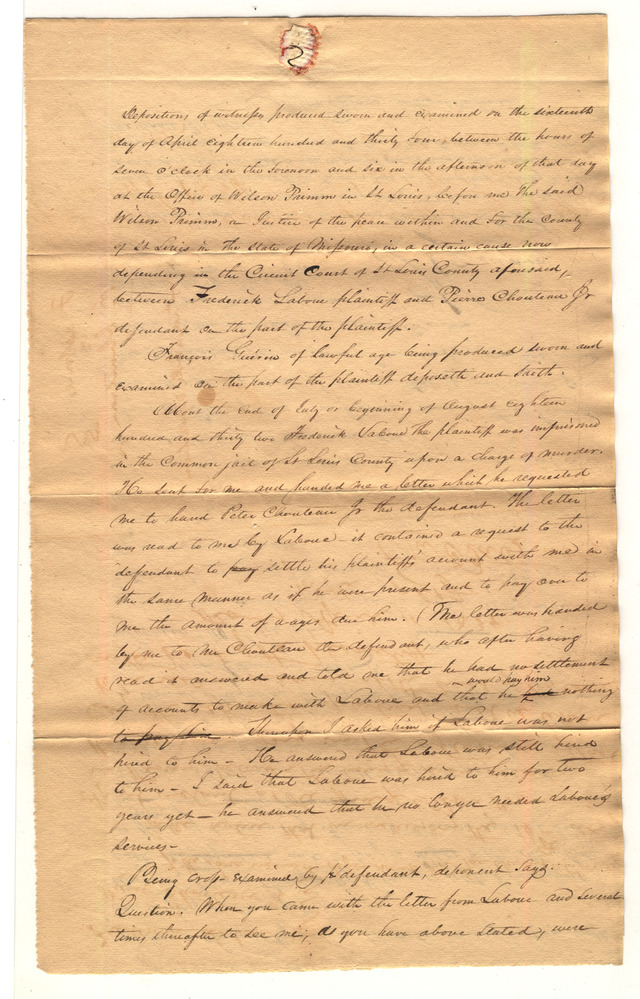 2
Depositions of witnesses produced sworn and examined on the sixteenth
day of April eighteen hundred and thirty four, between the hours of
seven o'clock in the forenoon and six in the afternoon of that day
at the Office of Wilson Primm in St Louis, before me the said
Wilson Primm, a Justice of the peace within and for the County
of St Louis in the State of Missouri, in a certain cause now
depending in the Circuit Court of St Louis County aforesaid,
between Frederick Laboue plaintiff and Pierre Chouteau Jr
defendant on the part of the plaintiff.
François Guérin of lawful age being produced sworn and
examined on the part of the plaintiff deposeth and saith.
About the end of July or beginning of August eighteen
hundred and thirty two Frederick Laboue the plaintiff was imprisoned
in the Common jail of St Louis County upon a charge of murder.
He sent for me and handed me a letter which he requested
me to hand Peter Chouteau Jr the defendant. The letter
was read to me by Laboue - it contained a request to the
defendant to pay settle his plaintiffs' account with me in
the same manner as if he were present and to pay over to
me the amount of wages due him. (The letter was handed
by me to Mr Chouteau the defendant, who after having
read it answered and told me that he had no settlement
of accounts to make with Laboue and that he would pay him nothing
to pay him. Thereupon I asked him if Laboue was not
hired to him - He answered that Laboue was still hired
to him - I said that Laboue was hired to him for two
years yet - he answered that he no longer needed Laboue's
services -
Being cross-examined by defendant, deponent says:
Question. When you came with the letter from Laboue and several
times thereafter to see me, as you have above stated, were